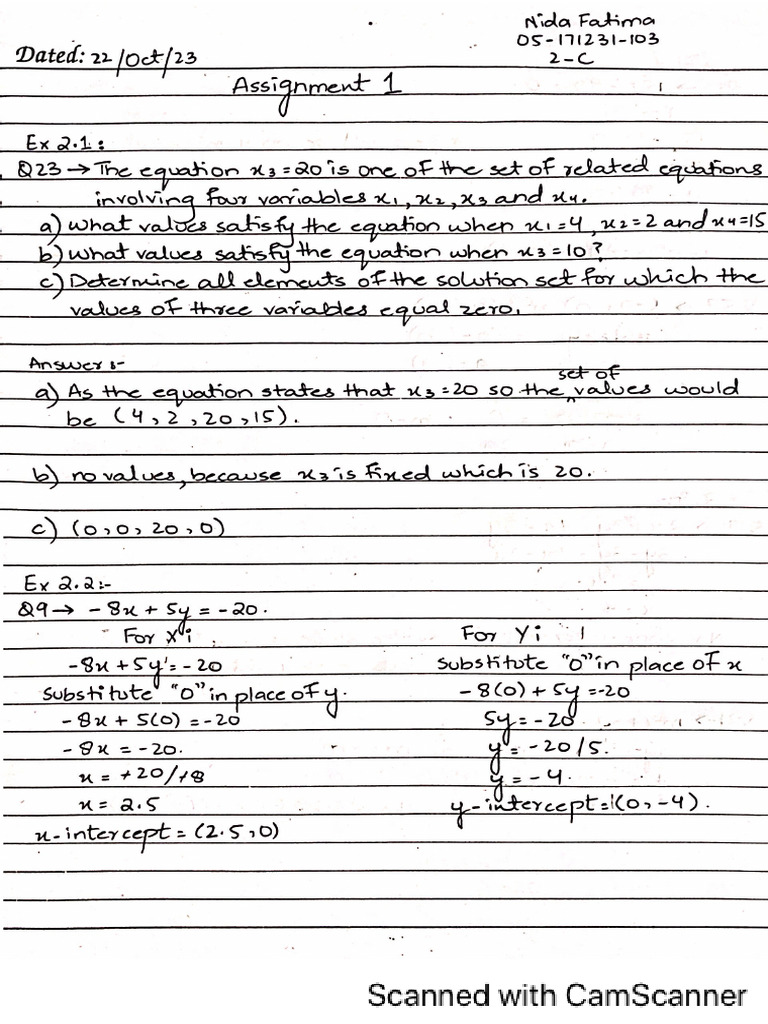 Nida Fatima
05-171231-103
Dated: 22/Oct/23
2-C
Assignment 1
Ex 2.1:
Q23 → The equation x₃=20 is one of the set of related equations
involving four variables x₁, x₂, x₃ and x₄.
a) What values satisfy the equation when x₁=4, x₂=2 and x₄=15
b) What values satisfy the equation when x₃=10?
c) Determine all elements of the solution set for which the
values of three variables equal zero.
Answer:-
a) As the equation states that x₃=20 so the set of values would
be (4,2,20,15).
b) no values, because x₃ is fixed which is 20.
c) (0,0,20,0)
Ex 2.2:-
Q9 → -8x + 5y = -20.
For Xi
-8x + 5y = -20
substitute "0" in place of y.
-8x + 5(0) = -20
-8x = -20.
x = +20/+8
x = 2.5
x-intercept = (2.5,0)
For Yi
substitute "0" in place of x
-8(0) + 5y = -20
5y = -20
y = -20/5.
y = -4.
y-intercept = (0,-4).
Scanned with CamScanner